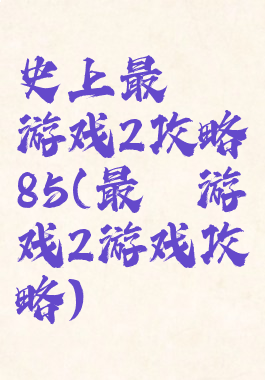 史上最
游戏2攻略
85(最 游
戏2游戏攻
略)